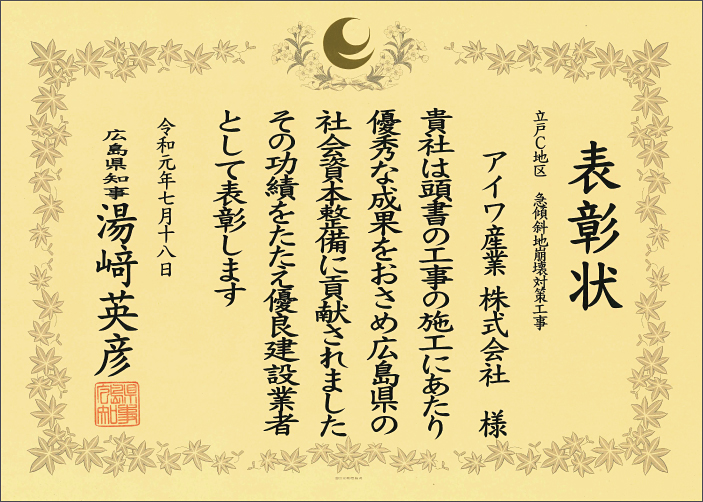 表彰状
立戸C地区　急傾斜地崩壊対策工事
アイワ産業 株式会社 様
貴社は頭書の工事の施工にあたり
優秀な成果をおさめ広島県の
社会資本整備に貢献されました
その功績をたたえ優良建設業者
として表彰します
令和元年七月十八日
広島県知事 湯﨑英彦